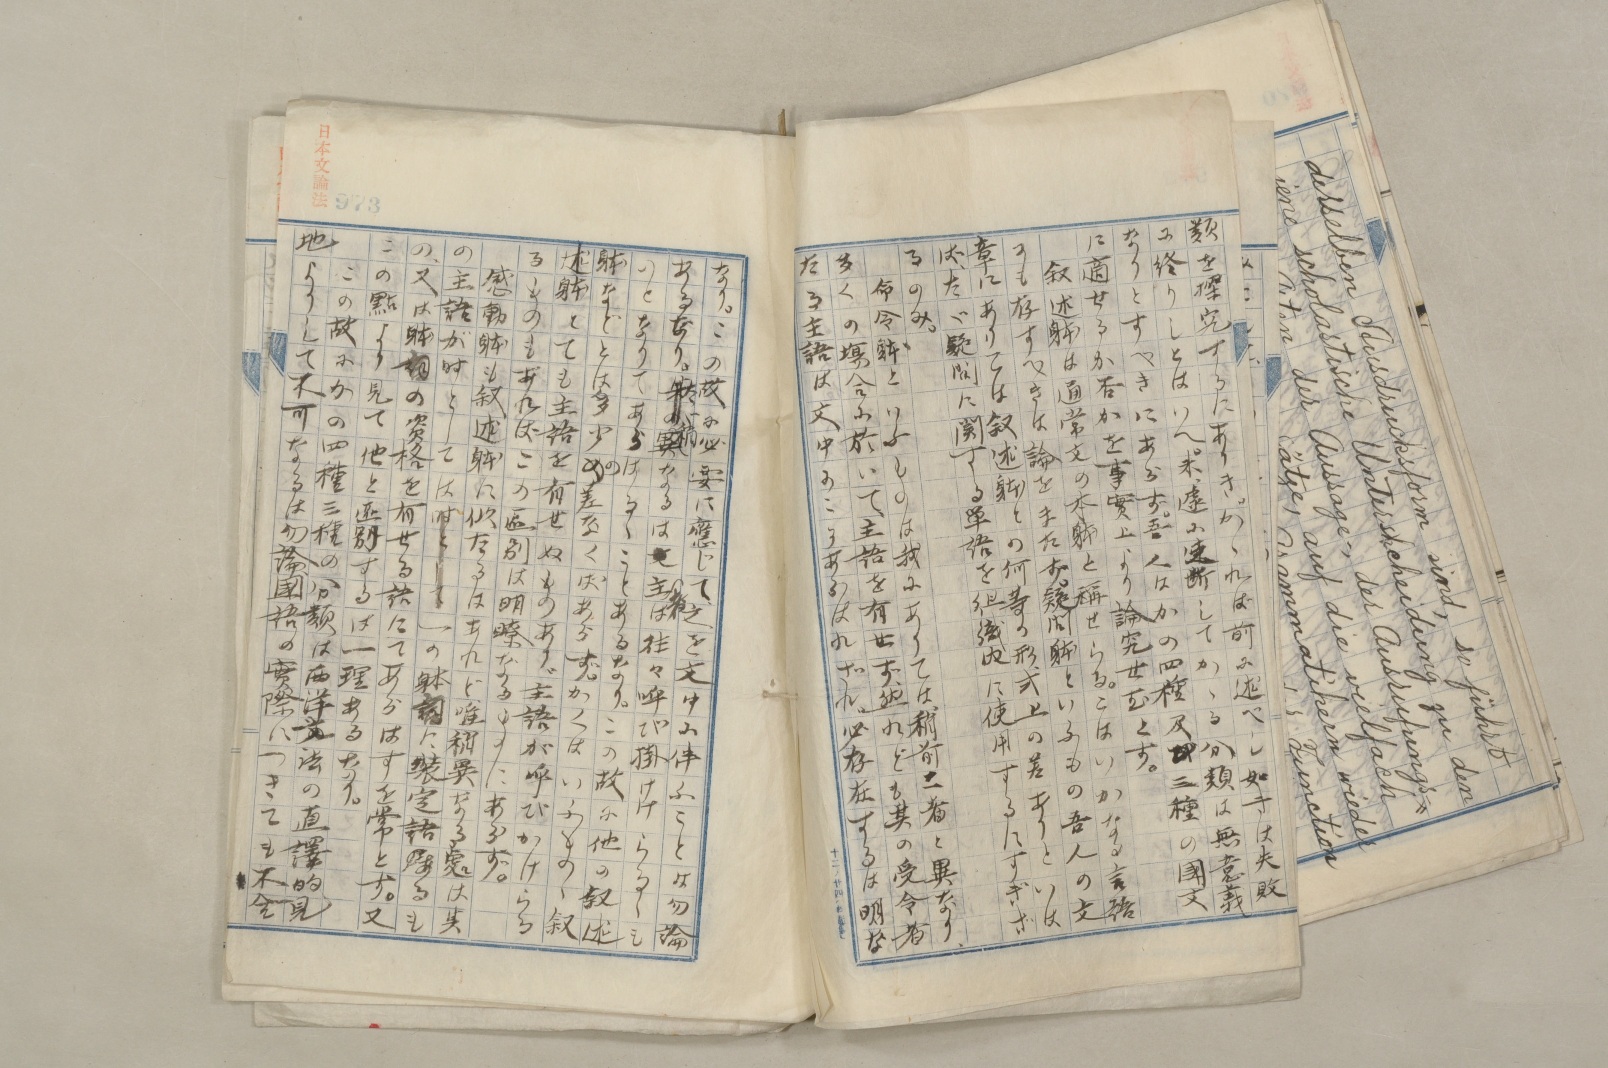 類を探究するにありき。かゝれば前に述べし如きは失敗
に終りしとはいへ。未、遽に速断してかゝる分類は無意義
なりとすべきにあらず。吾人はかの四種及三種の國文
に適せるか否かを事實上より論究せむとす。
叙述躰は通常文の本躰と稱せらる。こはいかなる言語
にも存すべきは論をまたず。疑問躰といふもの吾人の文
章にありては叙述躰との何等の形式上の差ありといは
ば、たゞ疑問に関する單語を組織内に使用するにすぎざ
るのみ。
命令躰といふものは我にありては、稍前二者と異なり、
多くの塲合に於いて、主語を有せず、然れども其の受令者
たる主語は文中にこそあらはれざれ。必存在するは明な
なり。この故に必要に應じて之を文中に伴ふことは勿論
あるなり。稍異なるは主者は往々呼び掛けらるゝも
のとなりてあらはるゝことあるなり。この故に他の叙述
躰などとは多少の差なくばあらず。かくはいふものゝ叙
述躰とても主語を有せぬものあり、主語が呼びかけらる
るものもあればこの區別は明瞭なるものにあらず。
感動躰も叙述躰に似たるはあれど唯稍異なる處は其
の主語が時としては一の躰詞に装定語あるも
の、又は躰詞の資格を有せる語にてあらはすを常とす。又
この點より見て他と區別するは一理あるなり。
この故にかの四種三種の分類は西洋文法の直譯的見
地よりして不可なるは勿論國語の實際につきても不全
日本文論法
973
derselben Ausdrucksform sind, so führt
jene scholastische Unterscheidung zu den
Arten der Aussage, des Ausrufungs=
auf die vielfach wieder
sätze, grammatischen Function